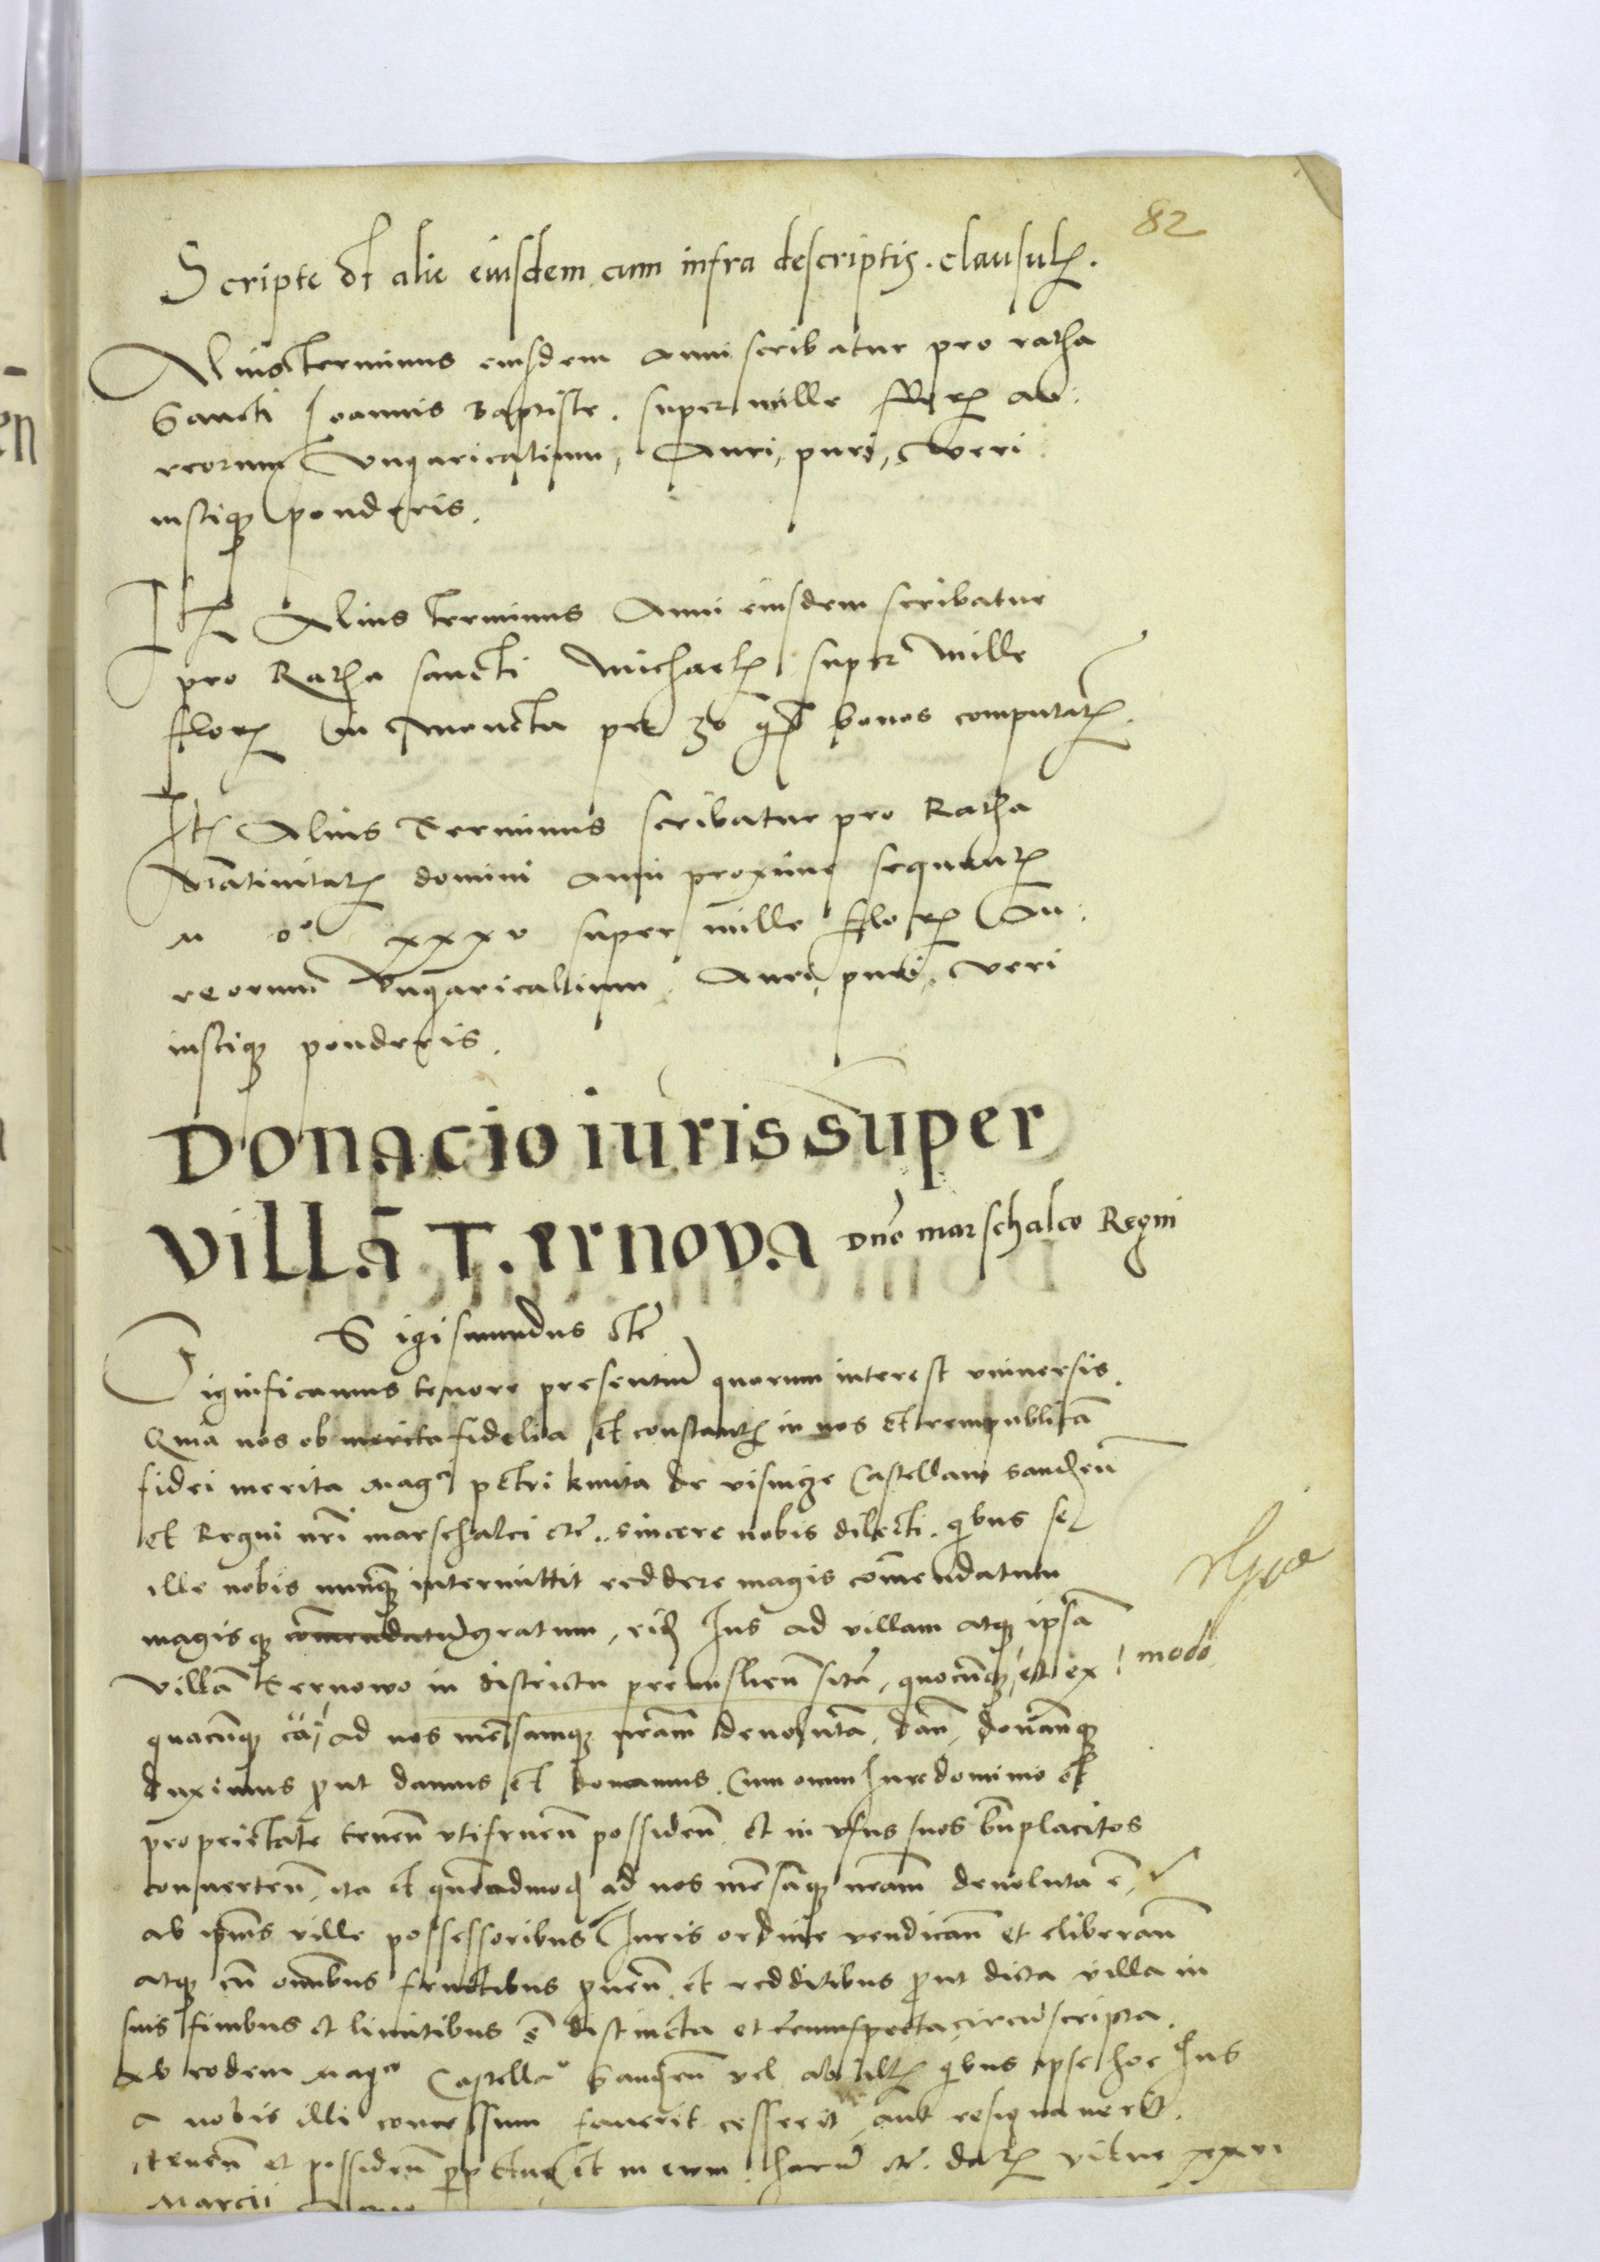 82
Scripte st alie eiusdem cum infra descriptis clausul.
Alius terminus eiusdem anni scribatur pro ratha
Sancti Joannis Baptiste. super mille flor au:
reorum Ungaricalium, Auri, puri, veri
iustique ponderis.
It Alius terminus Anni eiusdem scribatur
pro Ratha sancti Michael super Mille
flor in Moneta per 30 gr bonos computat.
It Alius Terminus scribatur pro Ratha
Nativitat domini anni proxime sequent
xxxv super mille flor Au:
reorum Ungaricalium. Auri, puri, veri
iustique ponderis.
Donacio iuris super
villa T.ernova Dno marschalco Regni
Sigismundus etc
Significamus tenore presentiu quorum interest universis.
Quia nos ob merita fidelia et constant in nos et rempublica
fidei merita Mag petri kmita de visnicze Castellani Sandien
et Regni nri marschalci etc. sincere nobis dilecti. quibus se
ille nobis nunq intermittit reddere magis comendatum
magisq comendatu gratum, Jus ad villam atq ipsa
villa Ternowo in districtu premislien sita, quocunq et ex modo
quacunq ca ad nos mensamq nram devoluta, dan, donanq
duximus put damus et donamus. Cum omni Jure dominio et
proprietate tenen utifruen possiden et in usus suos bnplacitos
converten, ita et quemadmod ad nos mensaq nram devoluta e,
ab ipius ville possessoribus Juris ordine vendican et eliberan
atq cu omibus fructibus pven et redditibus put dicta villa in
suis finibus et limitibus e distincta et circuscripta.
Ab eodem Mag Castella Sandien vel ab illis quibus ipse hoc Jus
a nobis illi concessum faverit cesserit, aut resignaverit.
tenen et possiden ppetue et in evm. haru etc. dat vilne xxvi
Marcii Anno